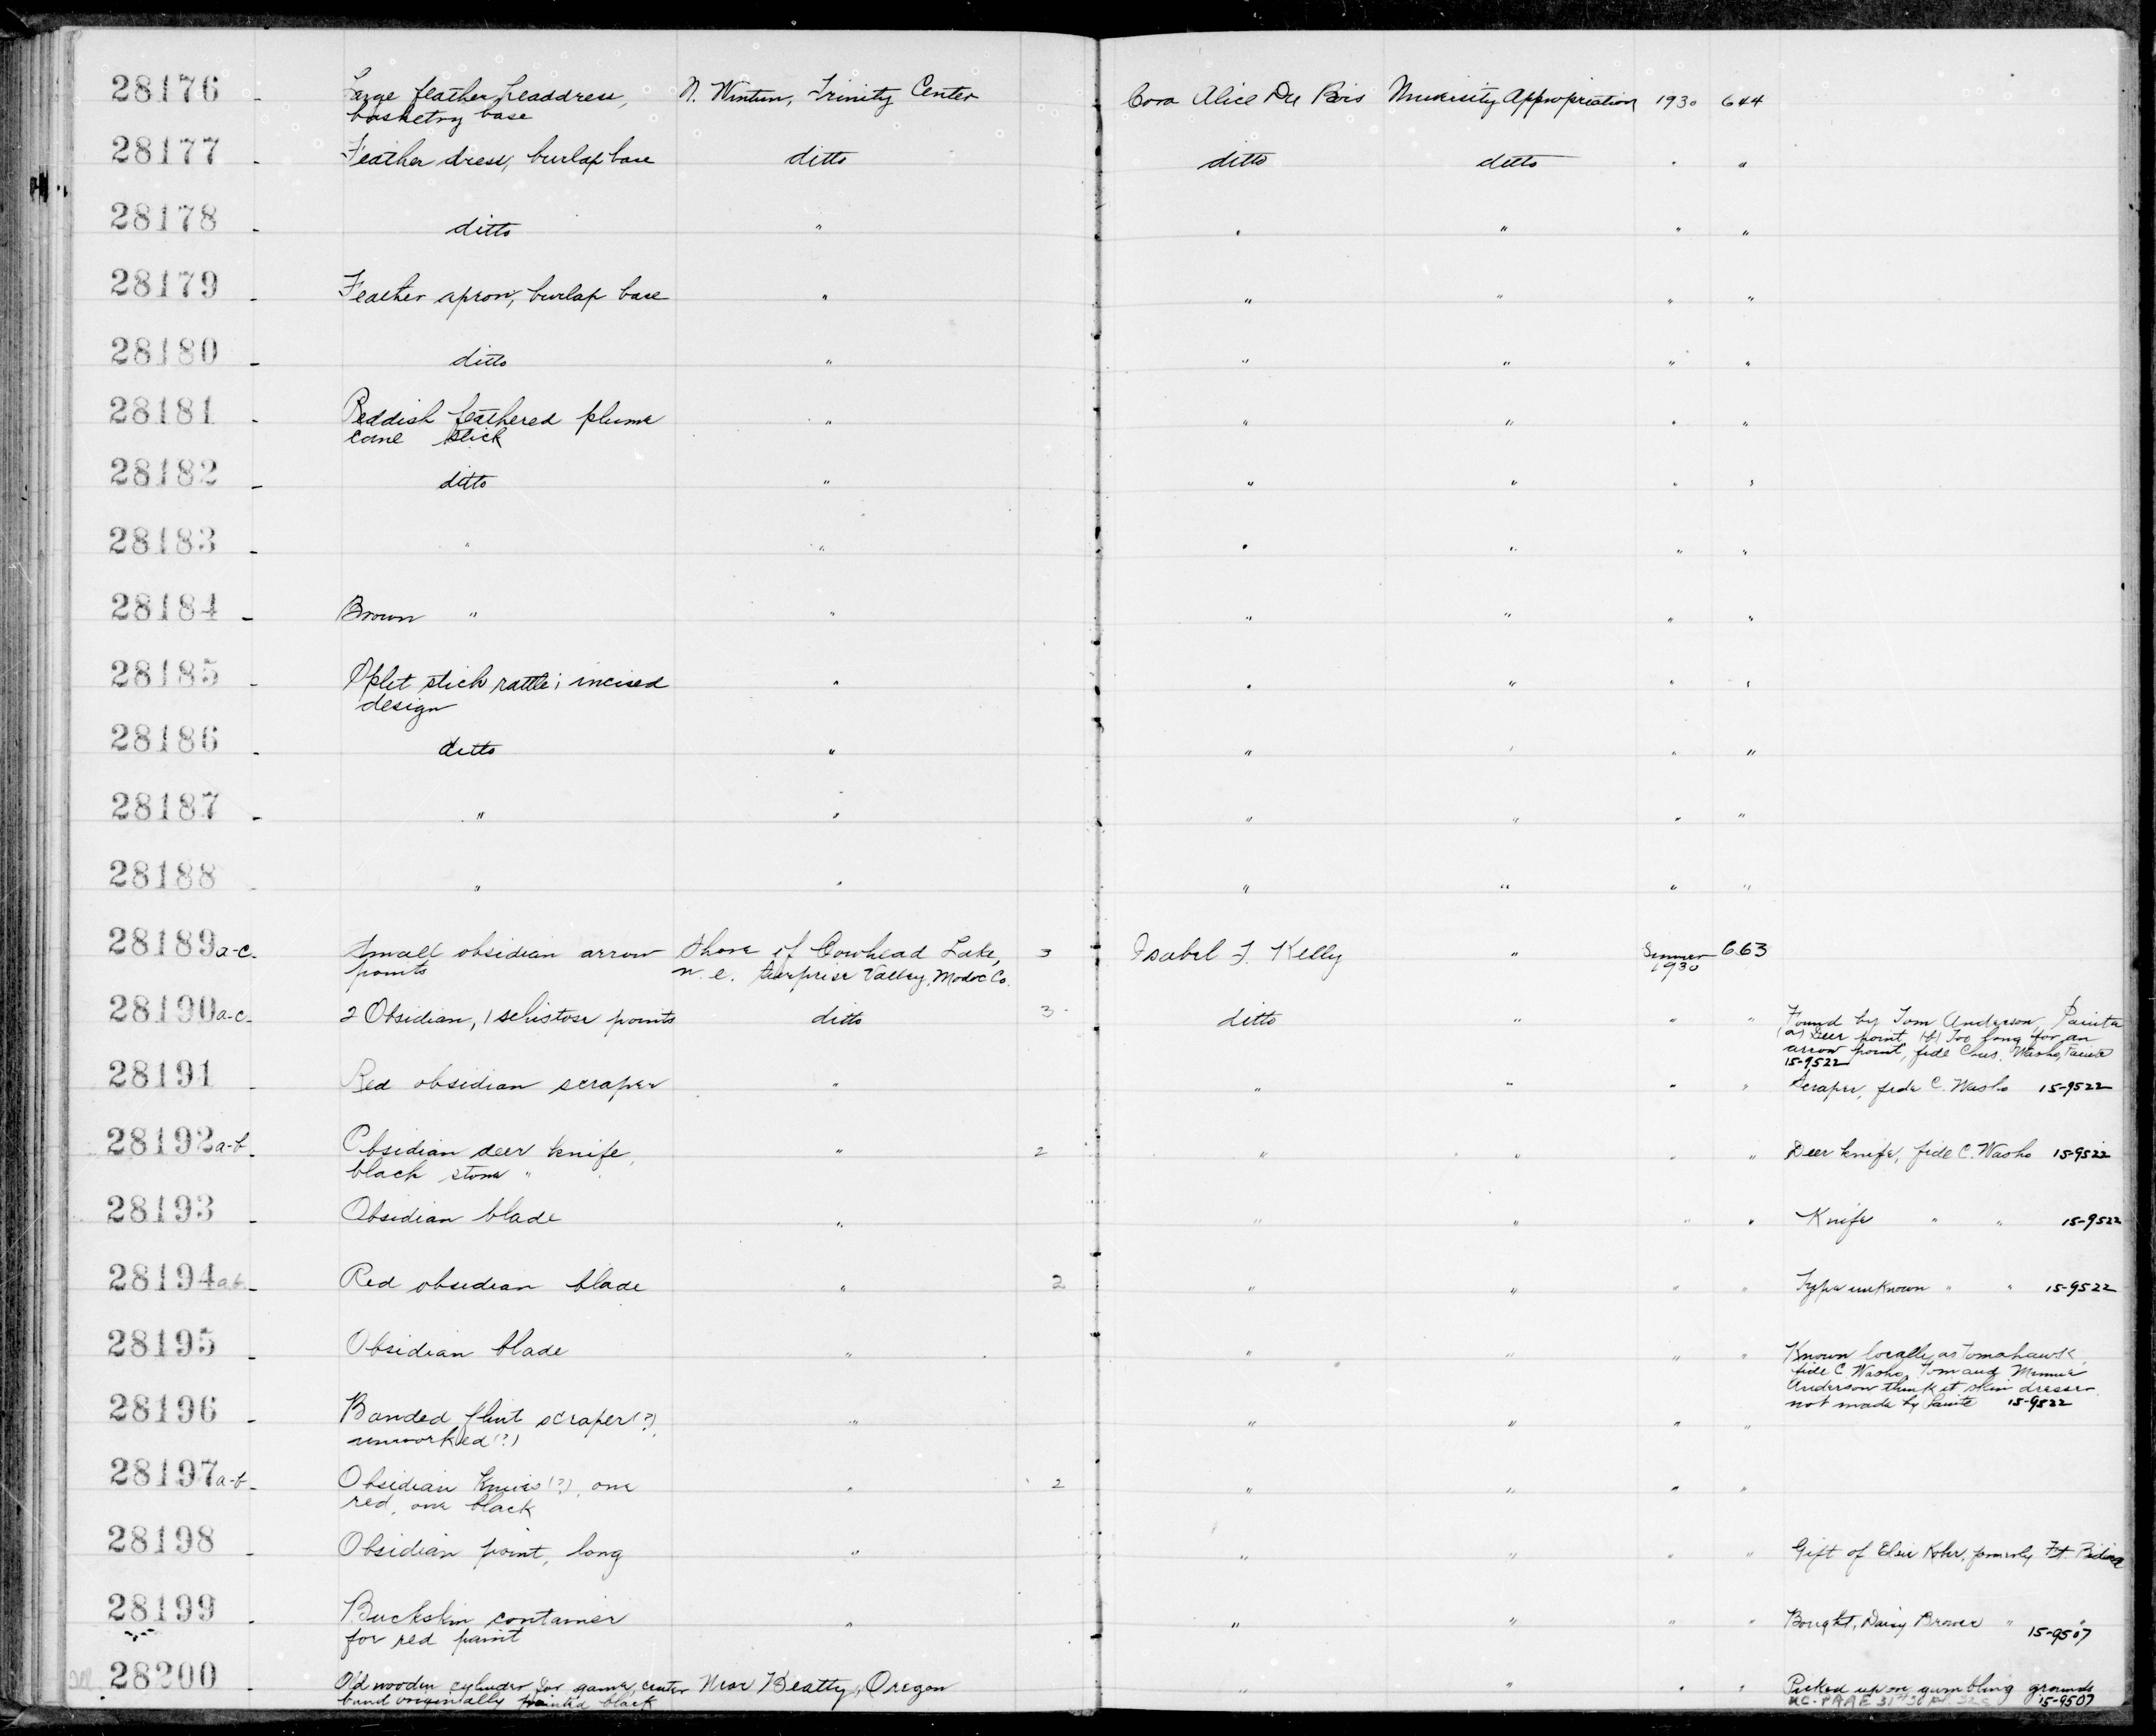 28176 - Large feather headdress, N. Wintun, Trinity Center Cora Alice Du Bois University Appropriation 1930 644
basketry base
28177 - Feather dress, burlap base ditto ditto ditto " "
28178 - ditto " " " " "
28179 - Feather apron, burlap base " " " " "
28180 - ditto " " " " "
28181 - Reddish feathered plume " " " " "
cane stick
28182 - ditto " " " " "
28183 - " " " " " "
28184 - Brown " " " " " "
28185 - Split stick rattle; incised " " " " "
design
28186 - ditto " " " " "
28187 - " " " " " "
28188 - " " " " " "
28189 a-c. Small obsidian arrow Shore of Cowhead Lake, 3 Isabel T. Kelly " Summer 663
points n.e. Surprise Valley, Modoc Co. 1930
28190 a-c. 2 Obsidian, 1 schistose points ditto 3 ditto " " " Found by Tom Anderson, Paiute
(a) Deer point (b) Too long for an
arrow point, fide Chas. Washo, Paiute
15-9522
28191 - Red obsidian scraper " " " " " Scraper, fide C. Washo 15-9522
28192 a-b. Obsidian deer knife, " 2 " " " " Deer knife, fide C. Washo 15-9522
black stone "
28193 - Obsidian blade " " " " " Knife " " 15-9522
28194 a.b. - Red obsidian blade " 2 " " " " Type unknown " " 15-9522
28195 - Obsidian blade " " " " " Known locally as tomahawk,
fide C. Washo, Tom and Minnie
Anderson think it skin dresser
not made by Paiute 15-9522
28196 - Banded flint scraper(?), " " " " "
unworked(?)
28197 a-b. Obsidian knives(?), one " 2 " " " "
red, one black
28198 - Obsidian point, long " " " " " Gift of Elsie formerly Ft. Bidwell
28199 - Buckskin container " " " " " Bought, Daisy Brower " "
for red paint 15-9507
28200 - Old wooden cylinder for game, center Near Beatty, Oregon " " " " Picked up on gambling grounds
band originally painted black UC-PAAE 31 15-9507